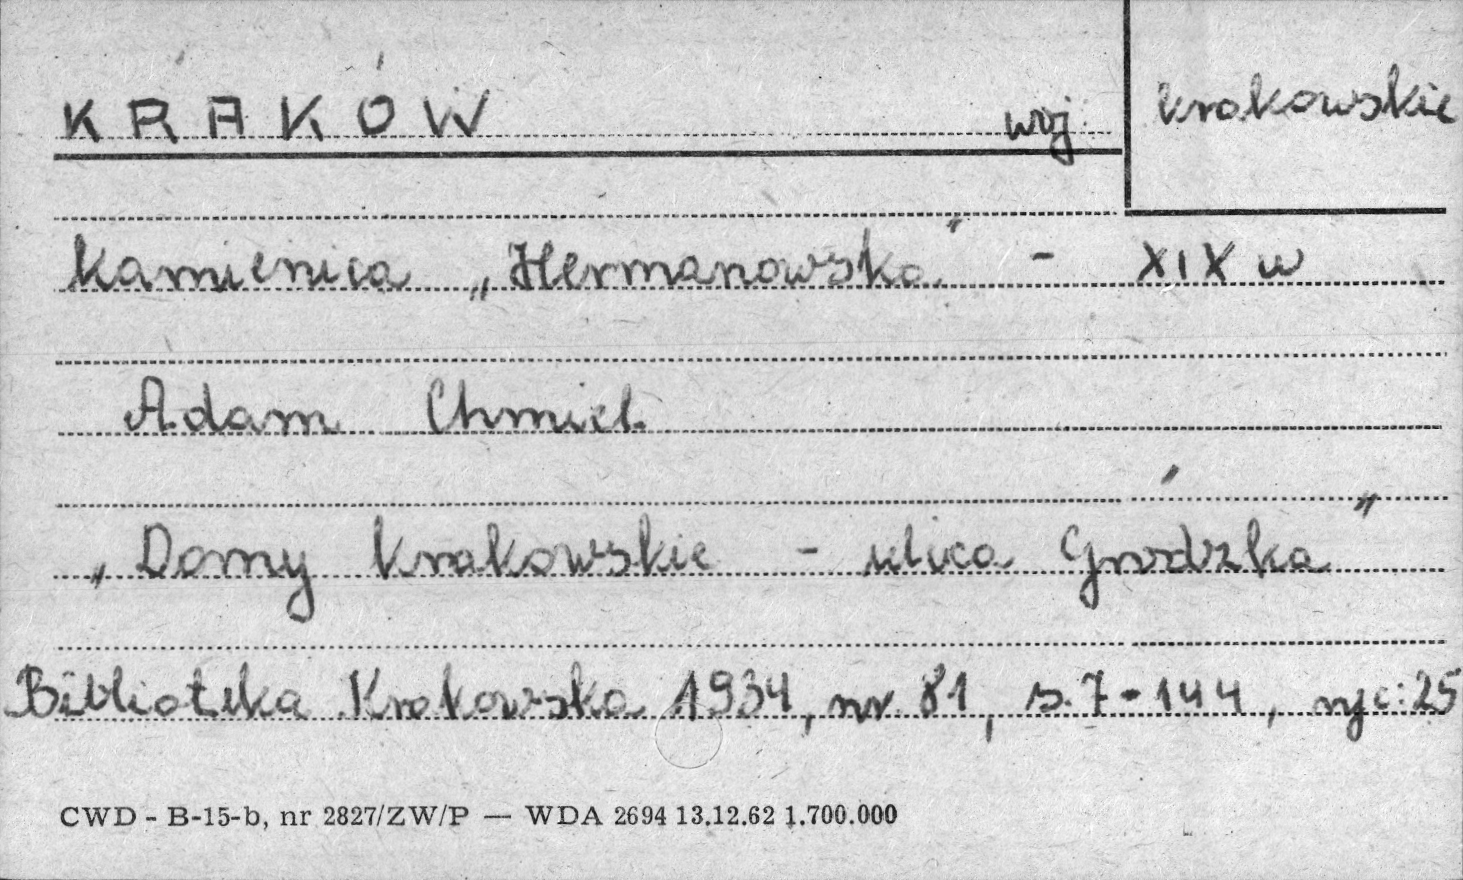 KRAKÓW woj. krakowskie
Kamienica „Hermanowska" - XIX w
Adam Chmiel
„Domy krakowskie - ulica Grodzka"
Biblioteka Krakowska 1934, nr. 81, s. 7-144, ryc: 25
CWD - B-15-b, nr 2827/ZW/P — WDA 2694 13.12.62 1.700.000